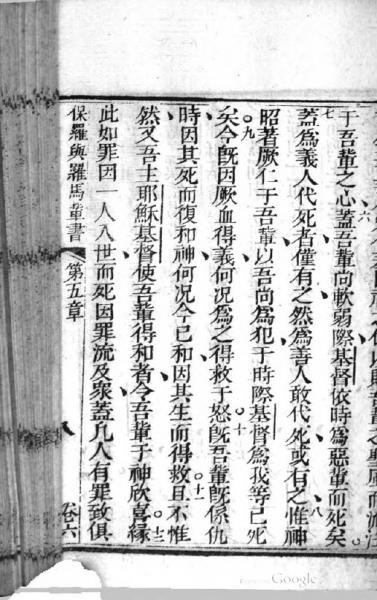 于吾輩之心蓋吾輩尚軟弱際基督依時爲惡輩而死矣
七
蓋爲義人代死者僅有之然爲善人敢代死或有之惟神
八
昭著厥仁于吾輩以吾尚爲犯于時際基督爲我等已死
九
矣今旣因厥血得義何况爲之得救于怒旣吾輩旣係仇
十
時因其死而復和神何况今已和因其生而得救且不惟
十一
然又吾主耶穌基督使吾輩得和者今吾輩于神欣喜緣
十二
此如罪因一人入世而死因罪流及衆蓋凡人有罪致俱
保羅與羅馬輩書
第五章
卷六
Google